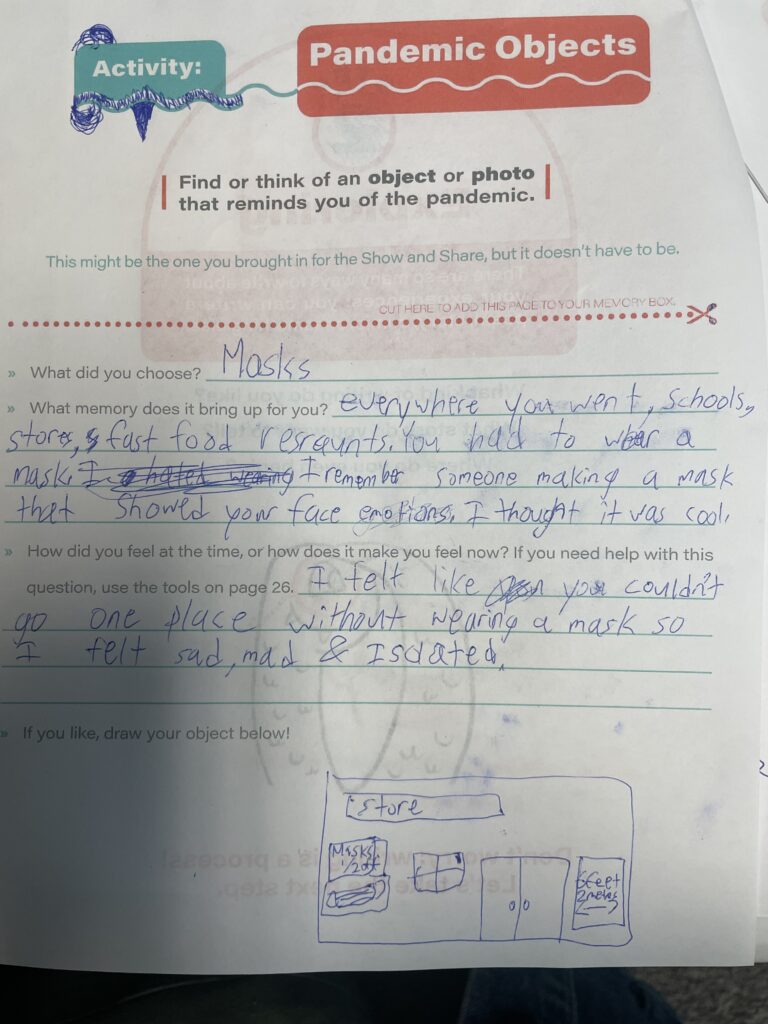 Activity:
Pandemic Objects
Find or think of an object or photo
that reminds you of the pandemic.
This might be the one you brought in for the Show and Share, but it doesn't have to be.
CUT HERE TO ADD THIS PAGE TO YOUR MEMORY BOX.
» What did you choose? Masks
» What memory does it bring up for you? everywhere you went, schools,
stores, fast food resraunts. You had to wear a
mask. I hated wearing I remember someone making a mask
that showed your face emotions. I thought it was cool.
» How did you feel at the time, or how does it make you feel now? If you need help with this
question, use the tools on page 26. I felt like you couldn't
go one place without wearing a mask so
I felt sad, mad & Isolated.
» If you like, draw your object below!
store
Masks
1/2 off
6feet
2meters
Don't worry, writing is a process!
Let's take the next step.